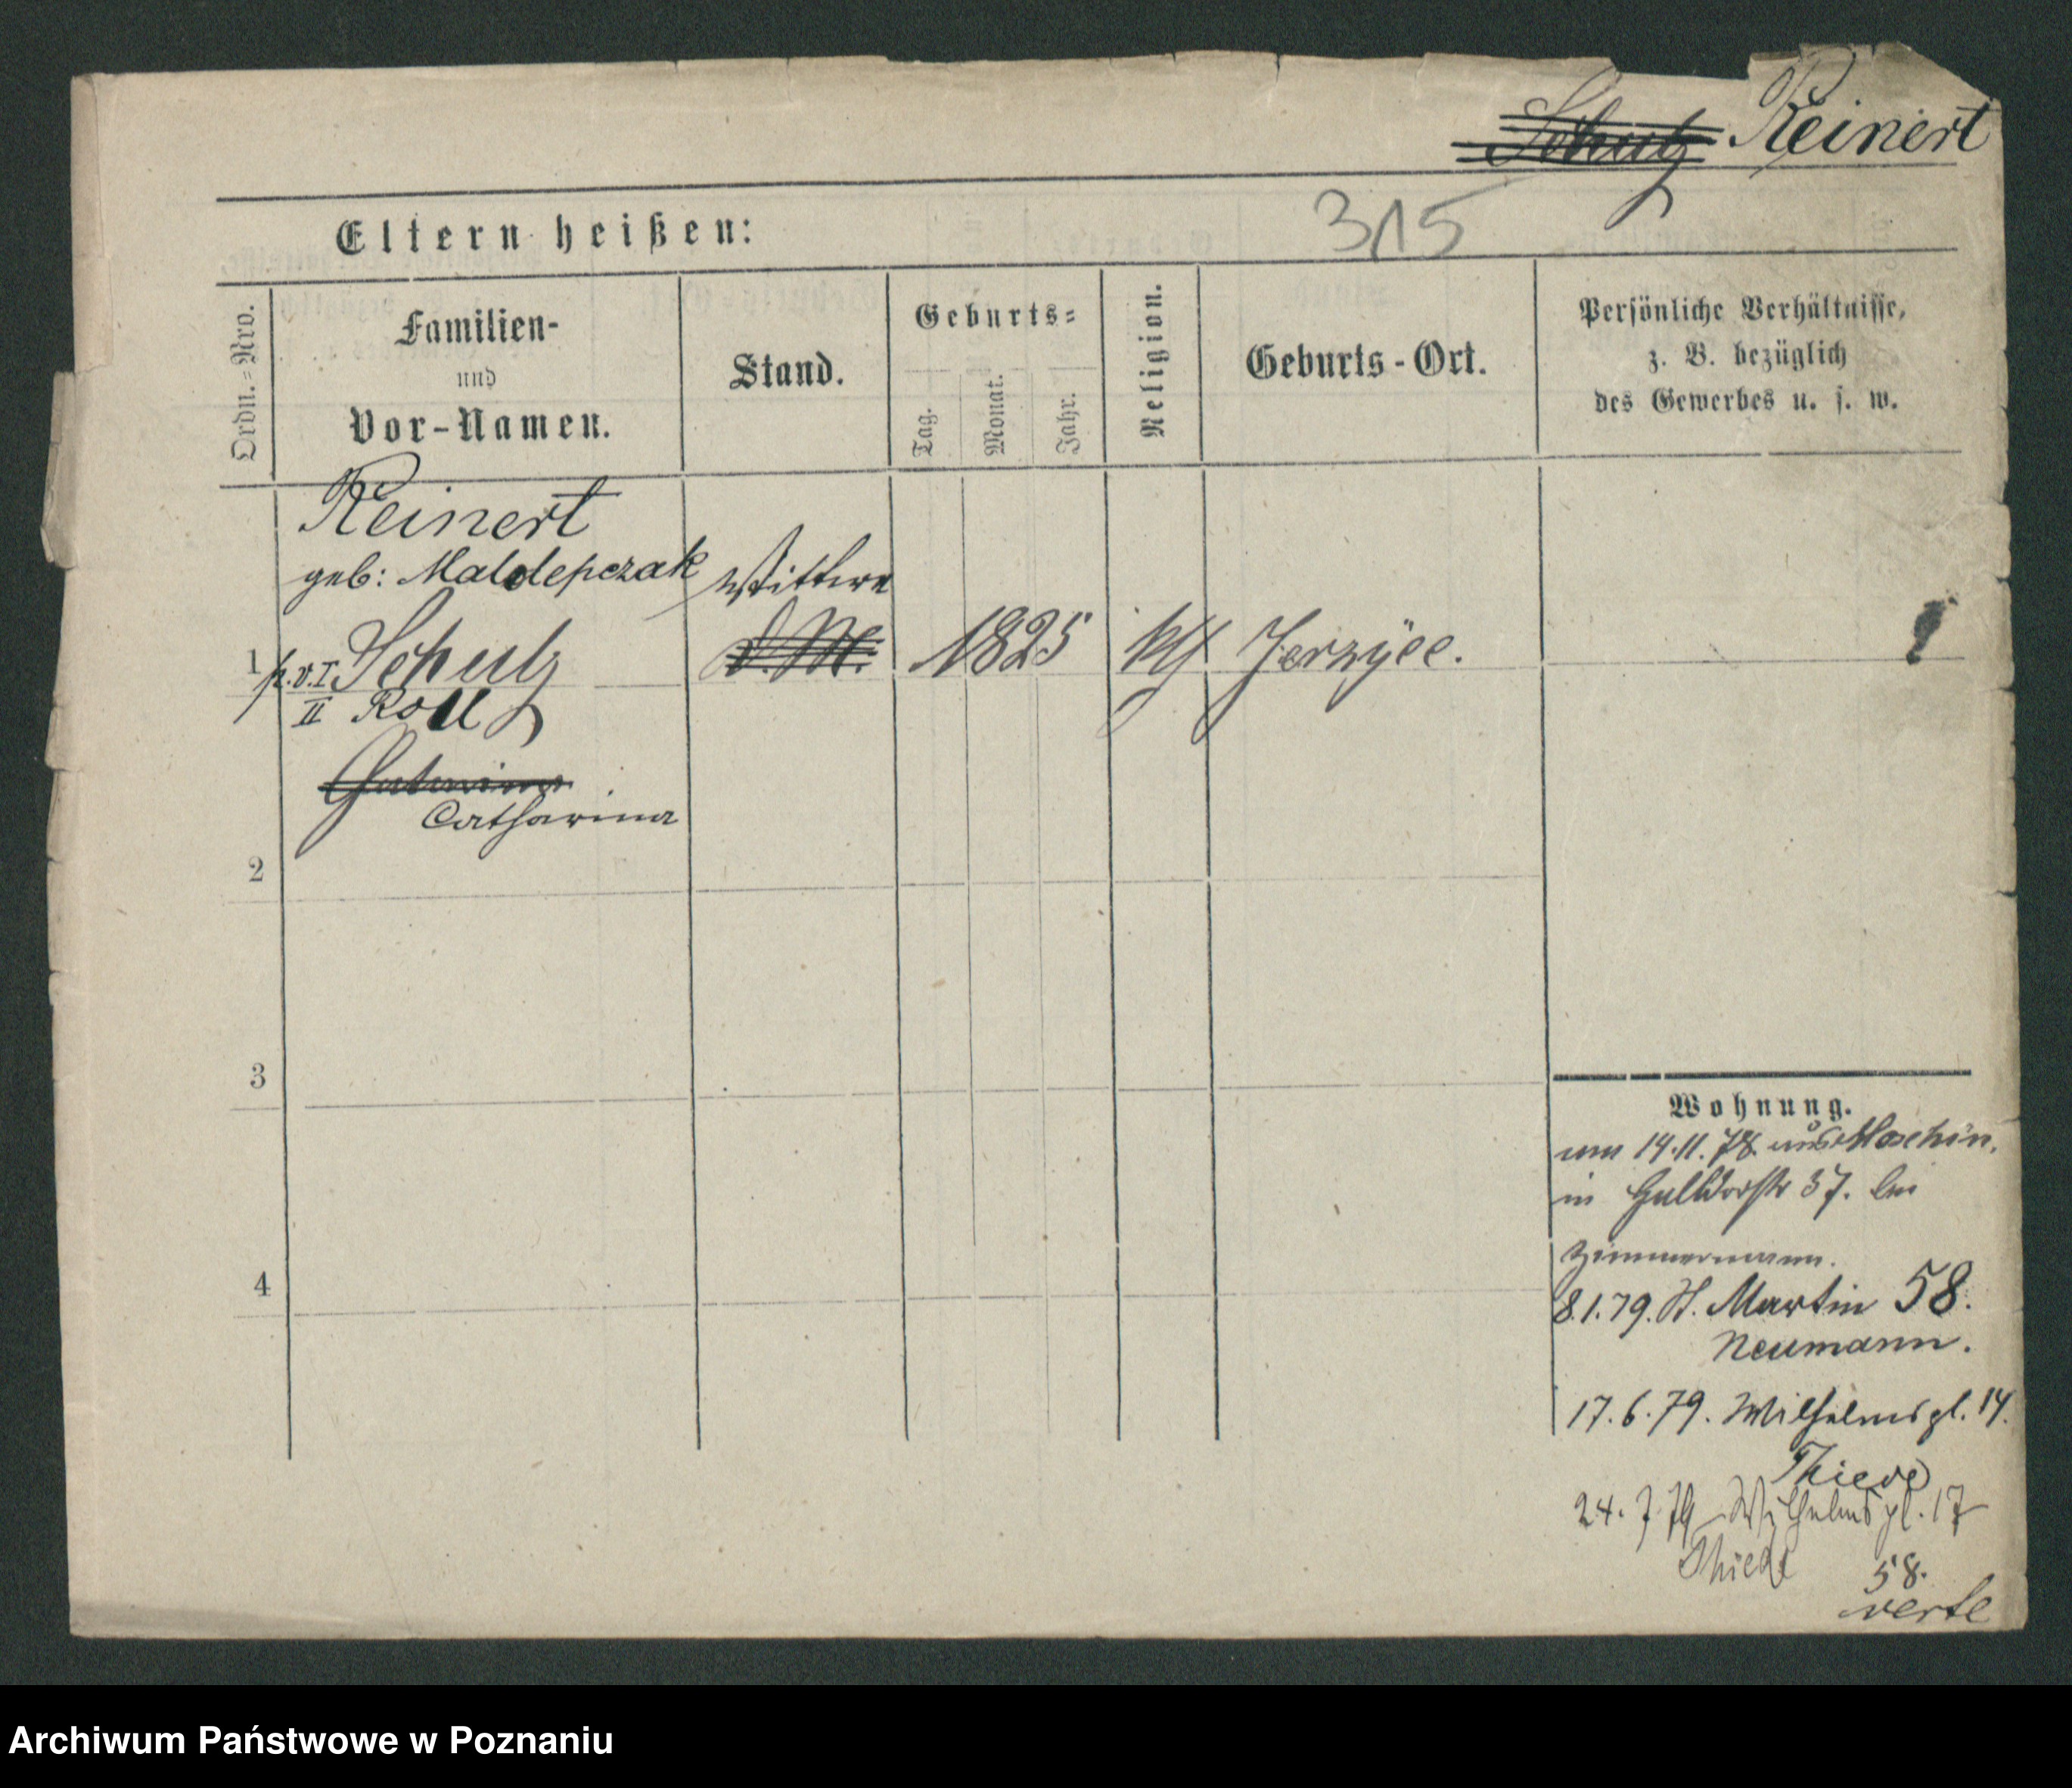 ~~Schulz~~ Reinert
315
Eltern heißen:
Ordn.=Nro.
Familien-
und
Vor-Namen.
Stand.
Geburts=
Tag.
Monat.
Jahr.
Religion.
Geburts-Ort.
Persönliche Verhältnisse,
z. B. bezüglich
des Gewerbes u. s. w.
Reinert
geb: Maldepczak Wittwe
1 p.v. I Schulz 1825 kth Jerzyce.
II Roll
Catharina
2
3
4
Wohnung.
am 14.11.78. aus Moschin.
in Halldorfstr 37. bei
Zimmermann.
8.1.79. St. Martin 58.
Neumann.
17.6.79. Wilhelmspl. 14.
Thiede
24.7.79 Wilhelmspl. 17
Thiede 58.
verte
Archiwum Państwowe w Poznaniu